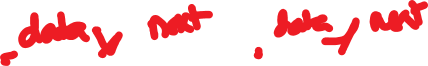 .data, next .data, next